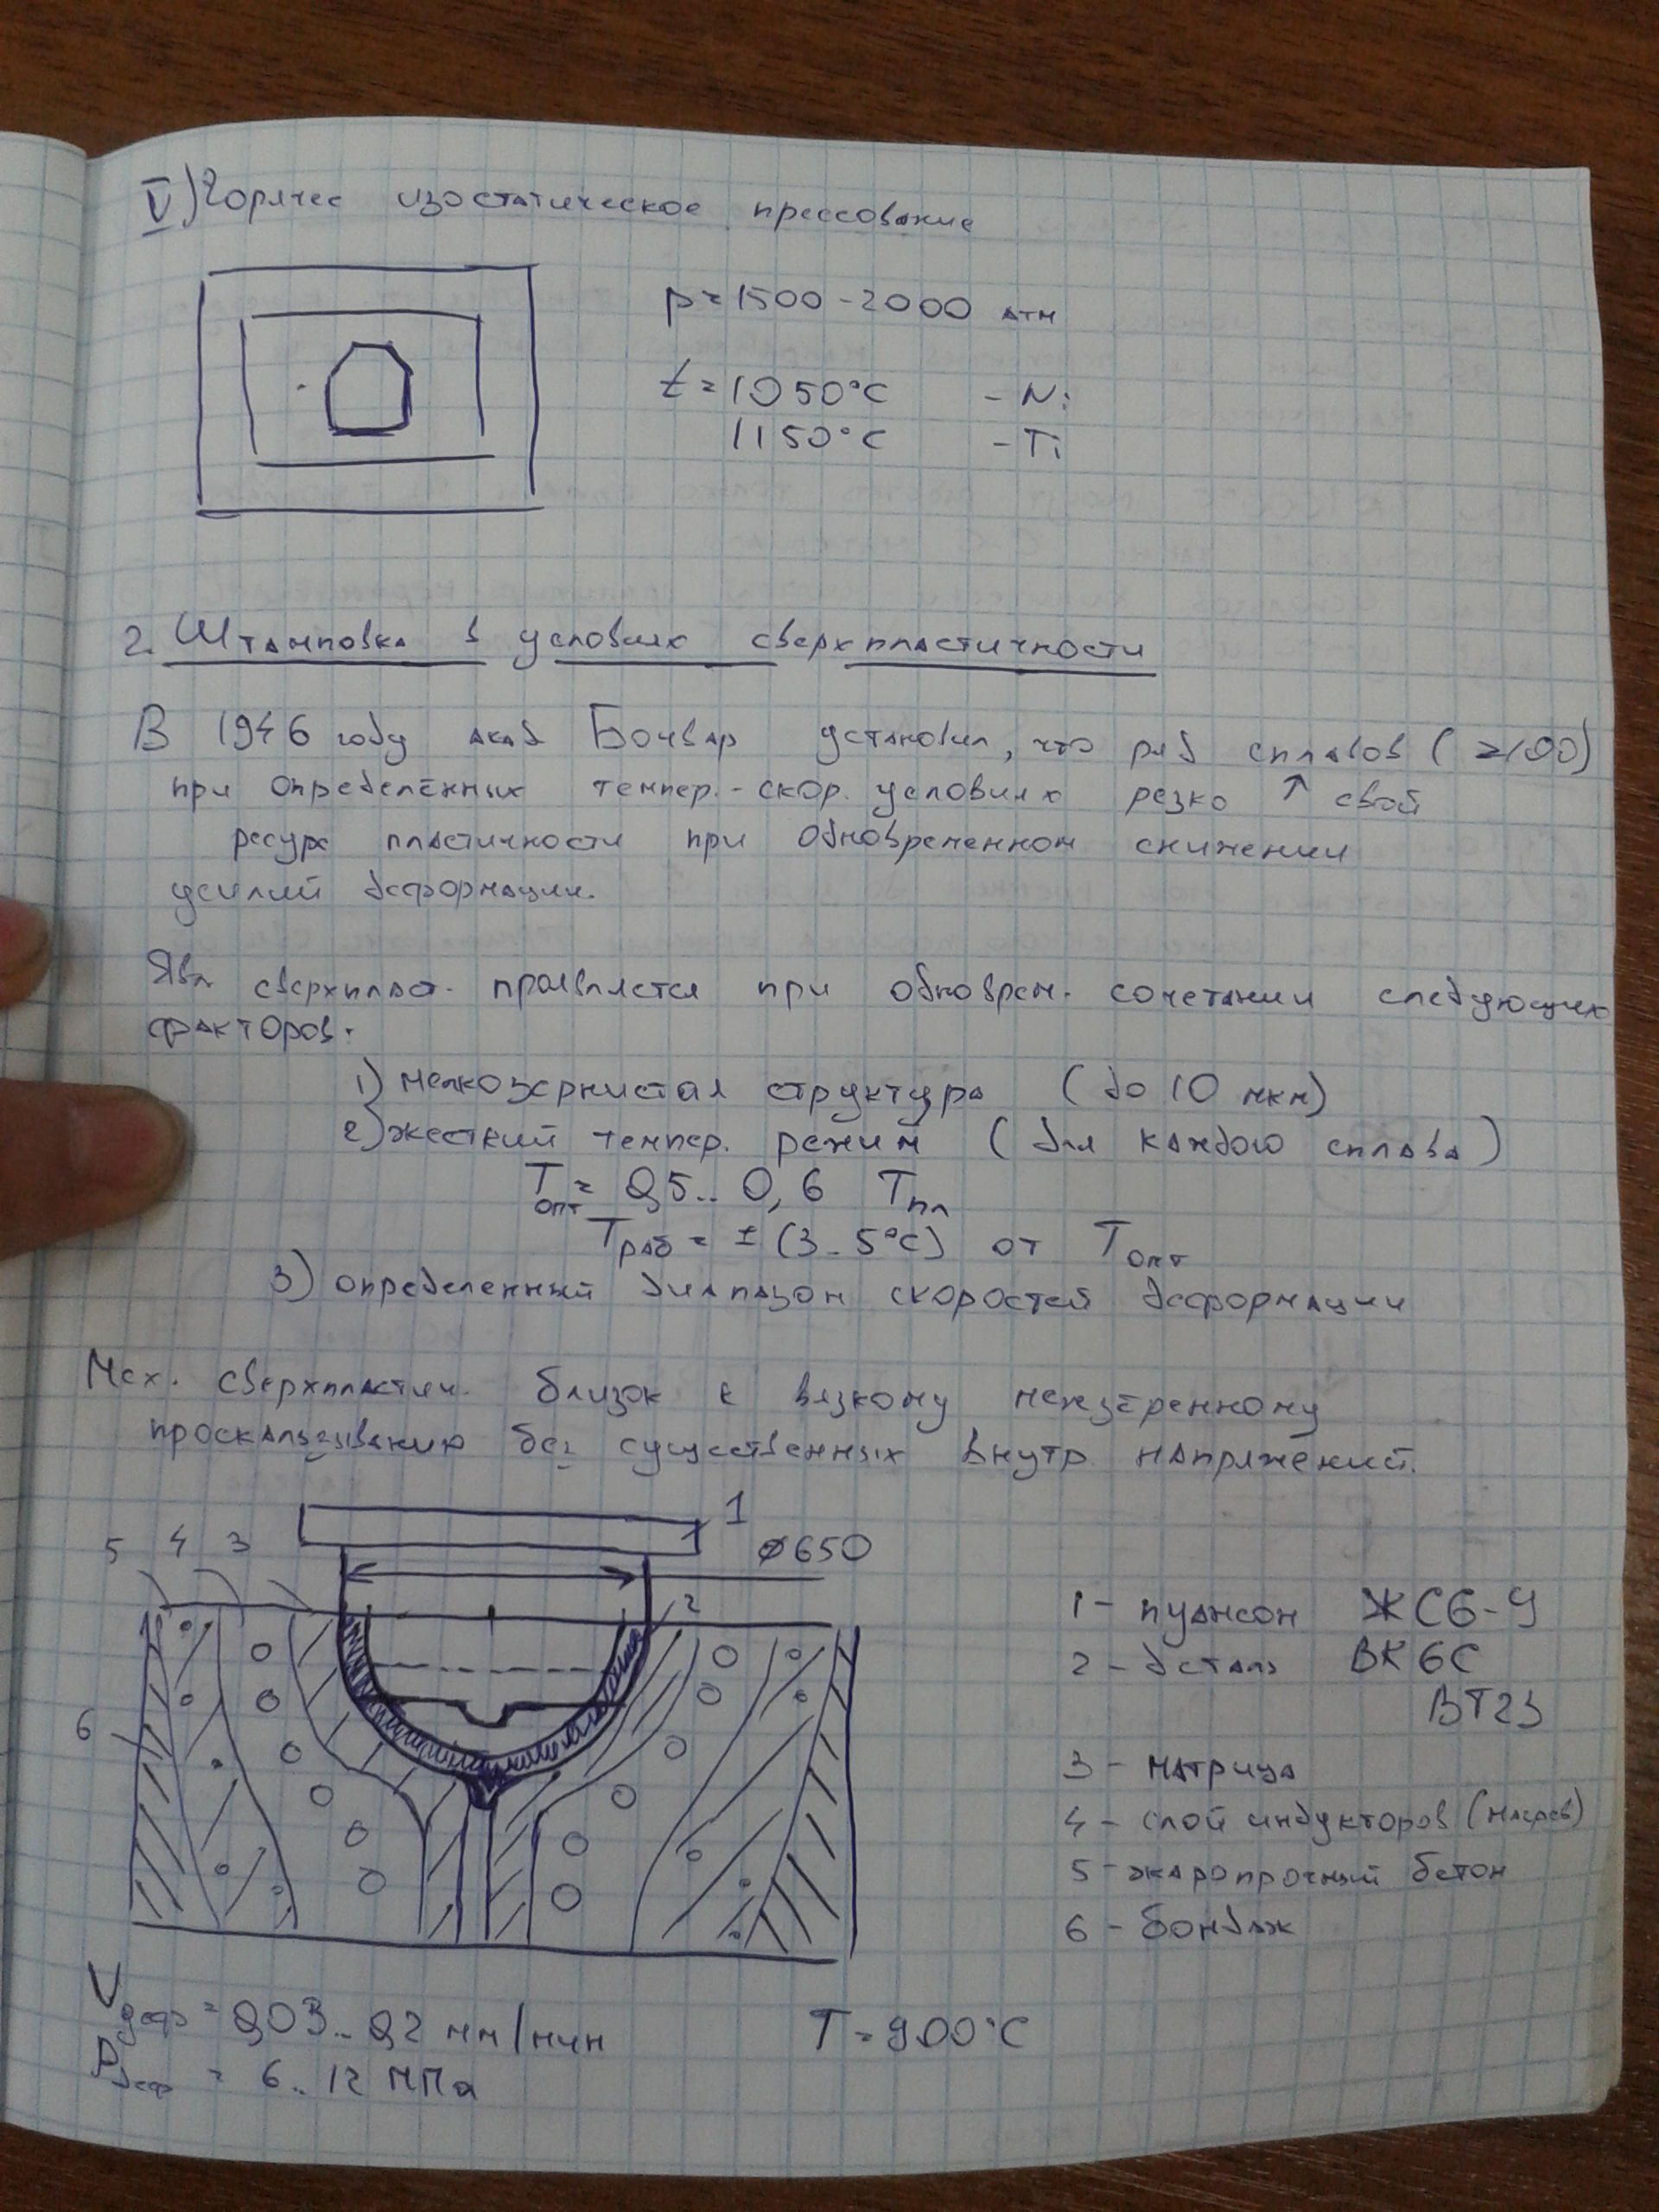 V) Горячее изостатическое прессование
p = 1500 - 2000 атм
t = 1050°C - Ni
1150°C - Ti
2. Штамповка в условиях сверхпластичности
В 1946 году акад Бочвар установил, что ряд сплавов (≥100)
при определённых темпер.-скор. условиях резко ↑ свой
ресурс пластичности при одновременном снижении
усилий деформации.
Явл сверхпласт. проявляется при одноврем. сочетании следующих
факторов:
1) мелкозернистая структура (до 10 мкм)
2) жесткий темпер. режим (для каждого сплава)
Tопт = 0,5.. 0,6 Tпл
Tраб = ± (3..5°C) от Tопт
3) определенный диапазон скоростей деформации
Мех. сверхпластич. близок к вязкому межзеренному
проскальзыванию без существенных внутр. напряжений.
5 4 3 1
⌀650
2
6
1 - пуансон ЖС6-У
2 - деталь ВК6С
ВТ23
3 - матрица
4 - слой индукторов (нагрев)
5 - жаропрочный бетон
6 - бондаж
Vдеф = 0,03.. 0,2 мм/мин
T = 900°C
Pдеф = 6.. 12 МПа